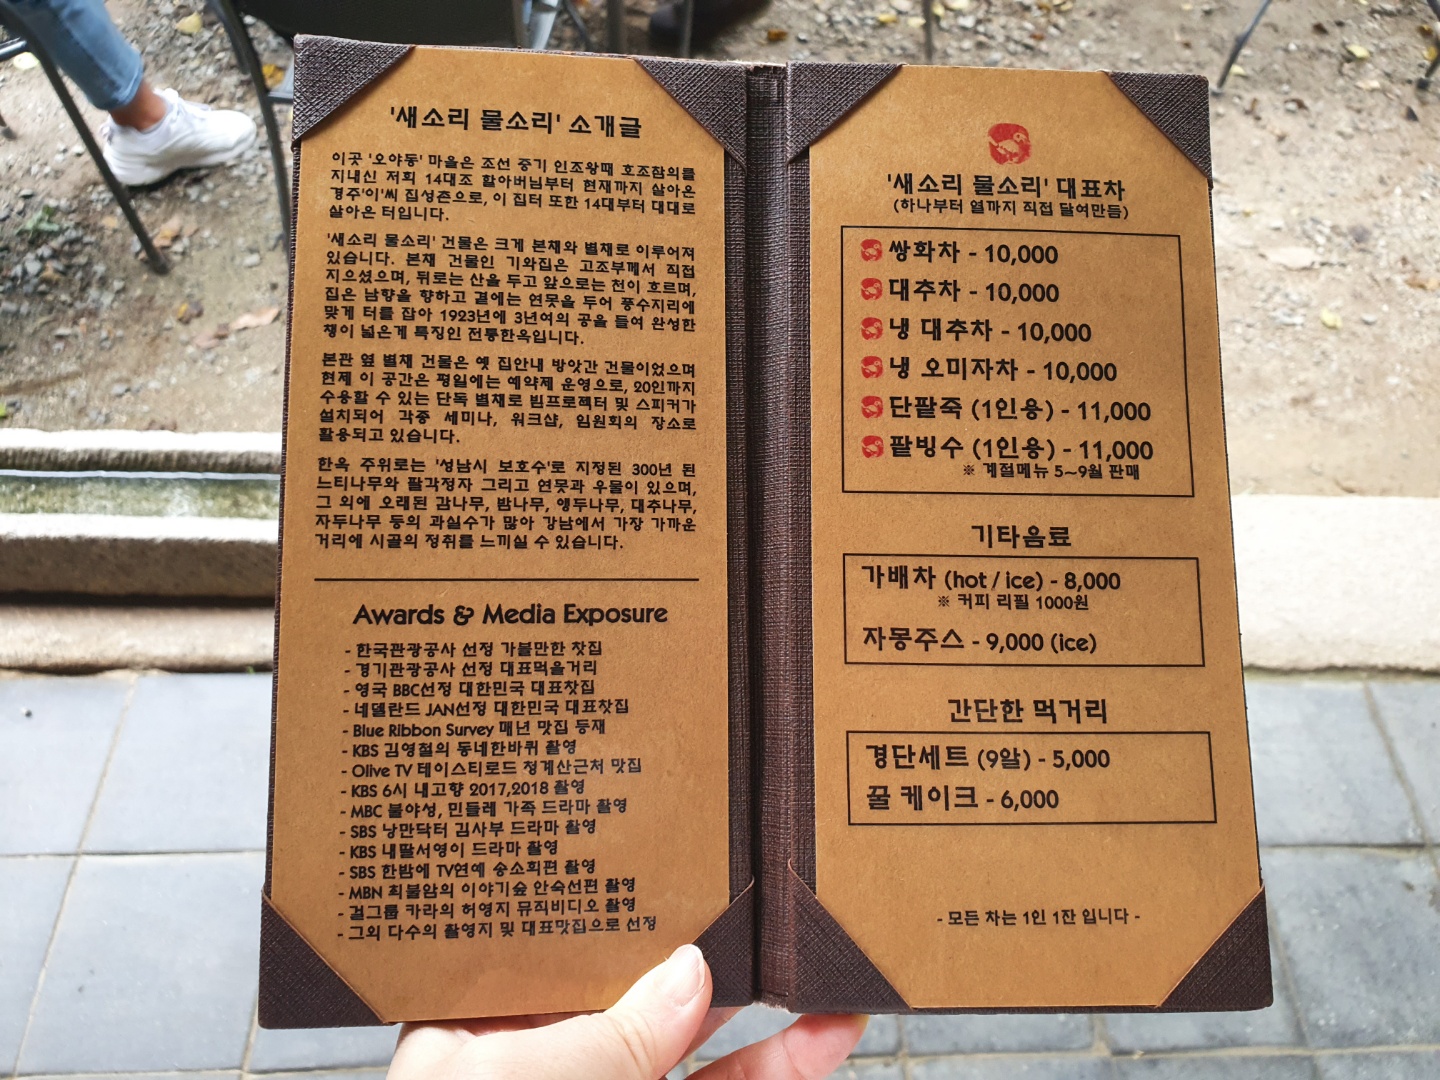 '새소리 물소리' 소개글
이곳 '오야동' 마을은 조선 중기 인조왕때 호조참의를
지내신 저희 14대조 할아버님부터 현재까지 살아온
경주'이'씨 집성촌으로, 이 집터 또한 14대부터 대대로
살아온 터입니다.
'새소리 물소리' 건물은 크게 본채와 별채로 이루어져
있습니다. 본채 건물인 기와집은 고조부께서 직접
지으셨으며, 뒤로는 산을 두고 앞으로는 천이 흐르며,
집은 남향을 향하고 곁에는 연못을 두어 풍수지리에
맞게 터를 잡아 1923년에 3년여의 공을 들여 완성한
챙이 넓은게 특징인 전통한옥입니다.
본관 옆 별채 건물은 옛 집안내 방앗간 건물이었으며
현제 이 공간은 평일에는 예약제 운영으로, 20인까지
수용할 수 있는 단독 별채로 빔프로젝터 및 스피커가
설치되어 각종 세미나, 워크샵, 임원회의 장소로
활용되고 있습니다.
한옥 주위로는 '성남시 보호수'로 지정된 300년 된
느티나무와 팔각정자 그리고 연못과 우물이 있으며,
그 외에 오래된 감나무, 밤나무, 앵두나무, 대추나무,
자두나무 등의 과실수가 많아 강남에서 가장 가까운
거리에 시골의 정취를 느끼실 수 있습니다.
Awards & Media Exposure
- 한국관광공사 선정 가볼만한 찻집
- 경기관광공사 선정 대표먹을거리
- 영국 BBC선정 대한민국 대표찻집
- 네델란드 JAN선정 대한민국 대표찻집
- Blue Ribbon Survey 매년 맛집 등재
- KBS 김영철의 동네한바퀴 촬영
- Olive TV 테이스티로드 청계산근처 맛집
- KBS 6시 내고향 2017,2018 촬영
- MBC 불야성, 민들레 가족 드라마 촬영
- SBS 낭만닥터 김사부 드라마 촬영
- KBS 내딸서영이 드라마 촬영
- SBS 한밤에 TV연예 송소희편 촬영
- MBN 최불암의 이야기숲 안숙선편 촬영
- 걸그룹 카라의 허영지 뮤직비디오 촬영
- 그외 다수의 촬영지 및 대표맛집으로 선정
'새소리 물소리' 대표차
(하나부터 열까지 직접 달여만듬)
쌍화차 - 10,000
대추차 - 10,000
냉 대추차 - 10,000
냉 오미자차 - 10,000
단팥죽 (1인용) - 11,000
팥빙수 (1인용) - 11,000
※ 계절메뉴 5~9월 판매
기타음료
가배차 (hot / ice) - 8,000
※ 커피 리필 1000원
자몽주스 - 9,000 (ice)
간단한 먹거리
경단세트 (9알) - 5,000
꿀 케이크 - 6,000
- 모든 차는 1인 1잔 입니다 -